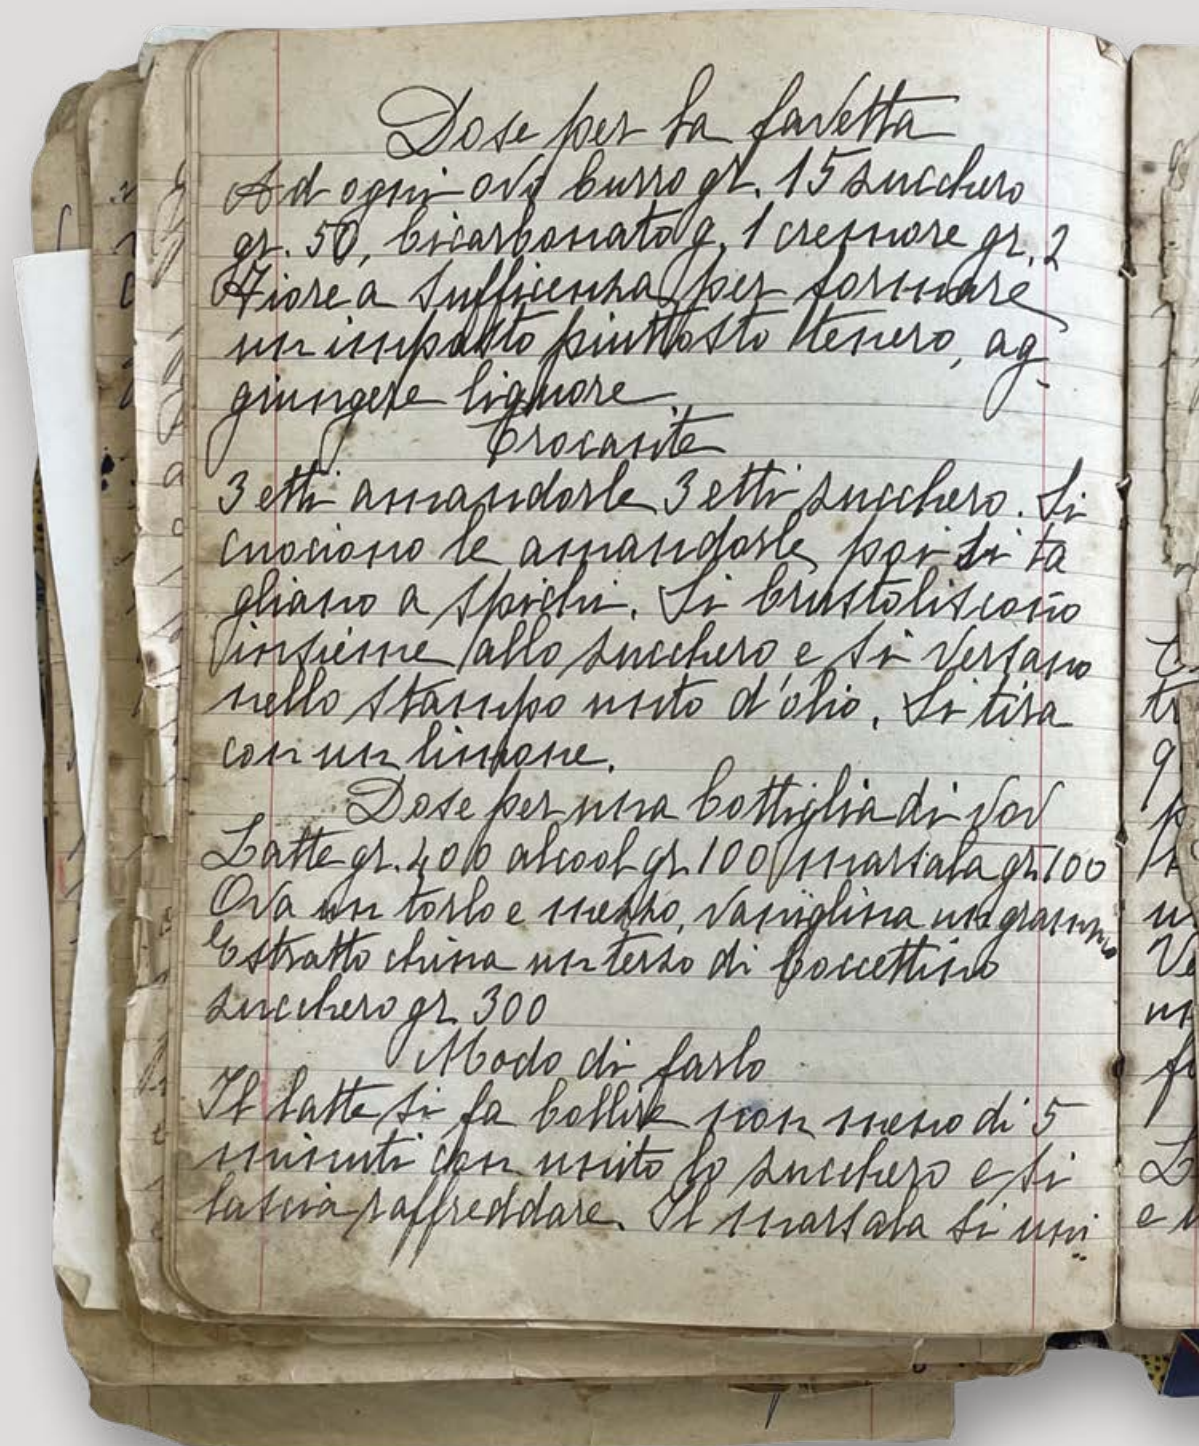 Dose per la favetta
Ad ogni ovo burro gr. 15 zucchero
gr. 50, bicarbonato g. 1 cremore gr. 2
Fiore a sufficenza per formare
un impasto piuttosto tenero, ag
giungere liquore
Crocante
3 etti amandorle 3 etti zucchero. Si
cuociono le amandorle poi si ta
gliano a spichi. Si brustoliscono
insieme allo zucchero e si versano
nello stampo unto d'olio. Si tira
con un limone.
Dose per una bottiglia di vov
Latte gr. 400 alcool gr. 100 marsala gr. 100
Ova un torlo e mezzo, vaniglina un grammo
Estratto china un terzo di boccettino
zucchero gr. 300
Modo di farlo
Il latte si fa bollire non meno di 5
minuti con unito lo zucchero e si
lascia raffreddare. Il marsala si uni